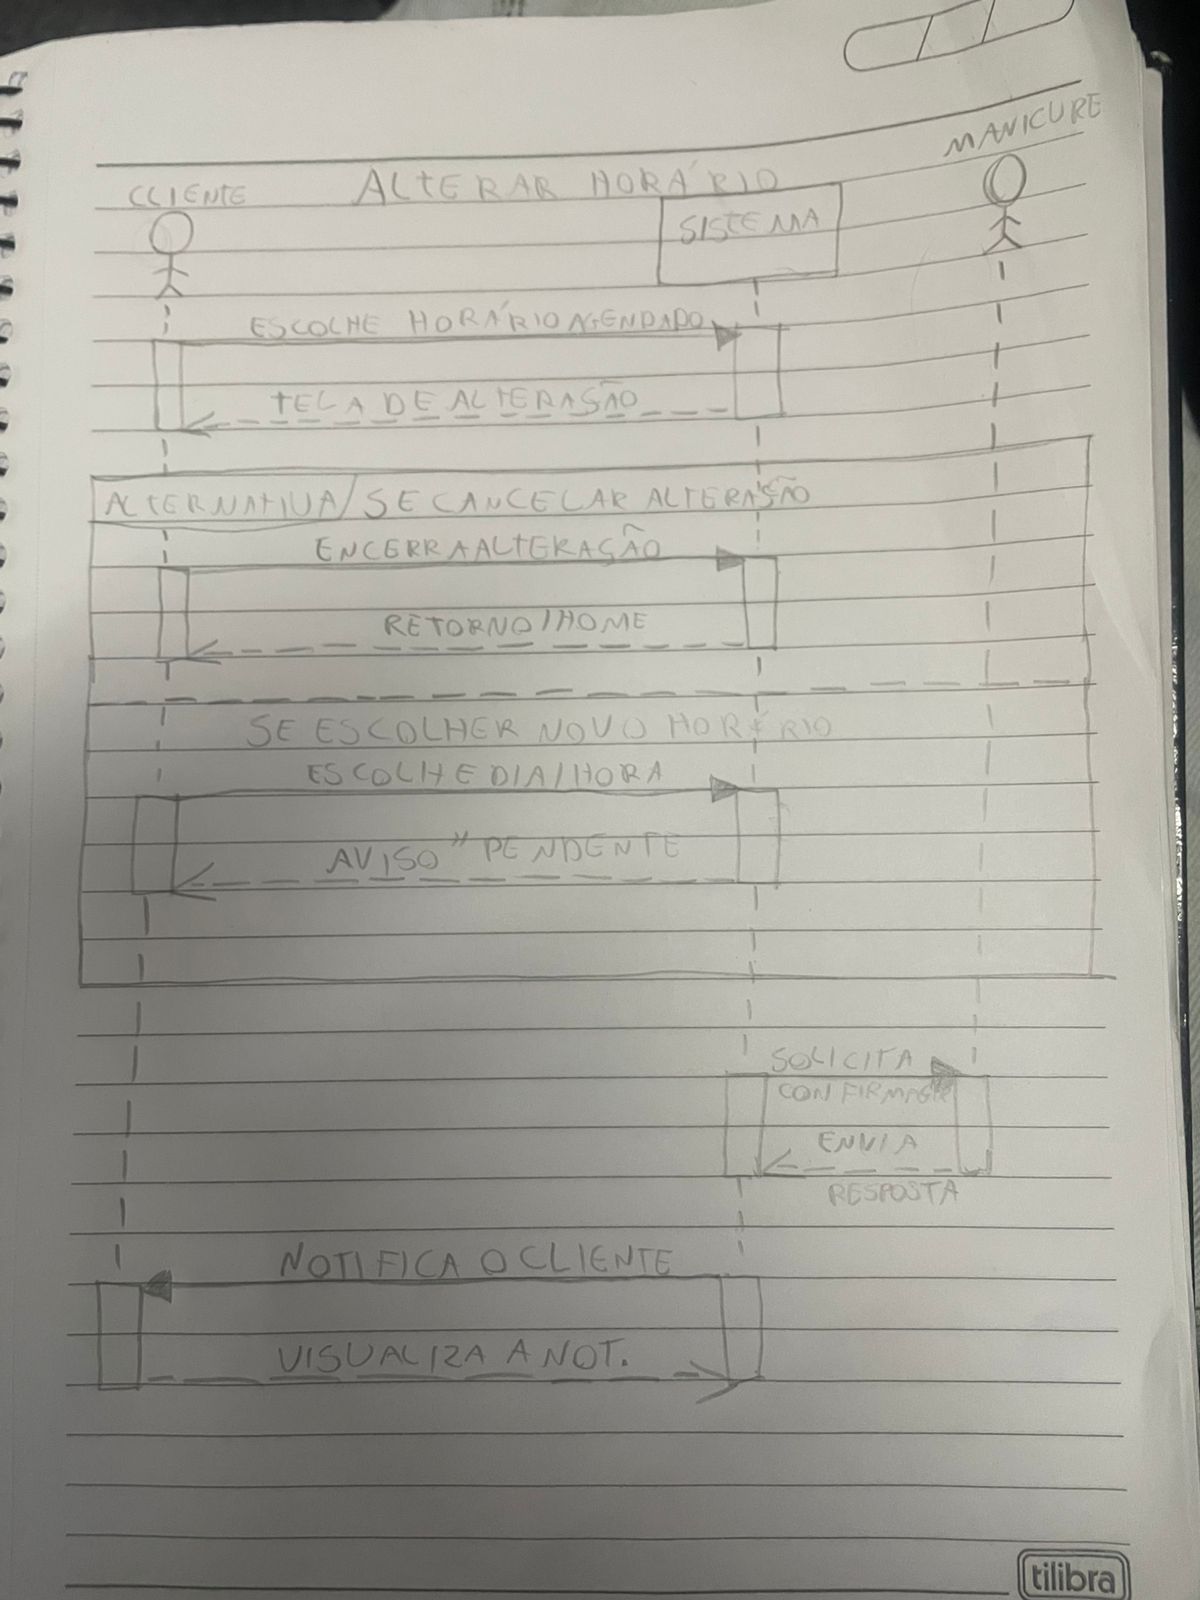 MANICURE
CLIENTE ALTERAR HORÁRIO
SISTEMA
ESCOLHE HORÁRIO AGENDADO
TELA DE ALTERAÇÃO
ALTERNATIVA/SE CANCELAR ALTERAÇÃO
ENCERRA ALTERAÇÃO
RETORNO/HOME
SE ESCOLHER NOVO HORÁRIO
ESCOLHE DIA/HORA
AVISO "PENDENTE
SOLICITA
CONFIRMAÇÃO
ENVIA
RESPOSTA
NOTIFICA O CLIENTE
VISUALIZA A NOT.
tilibra